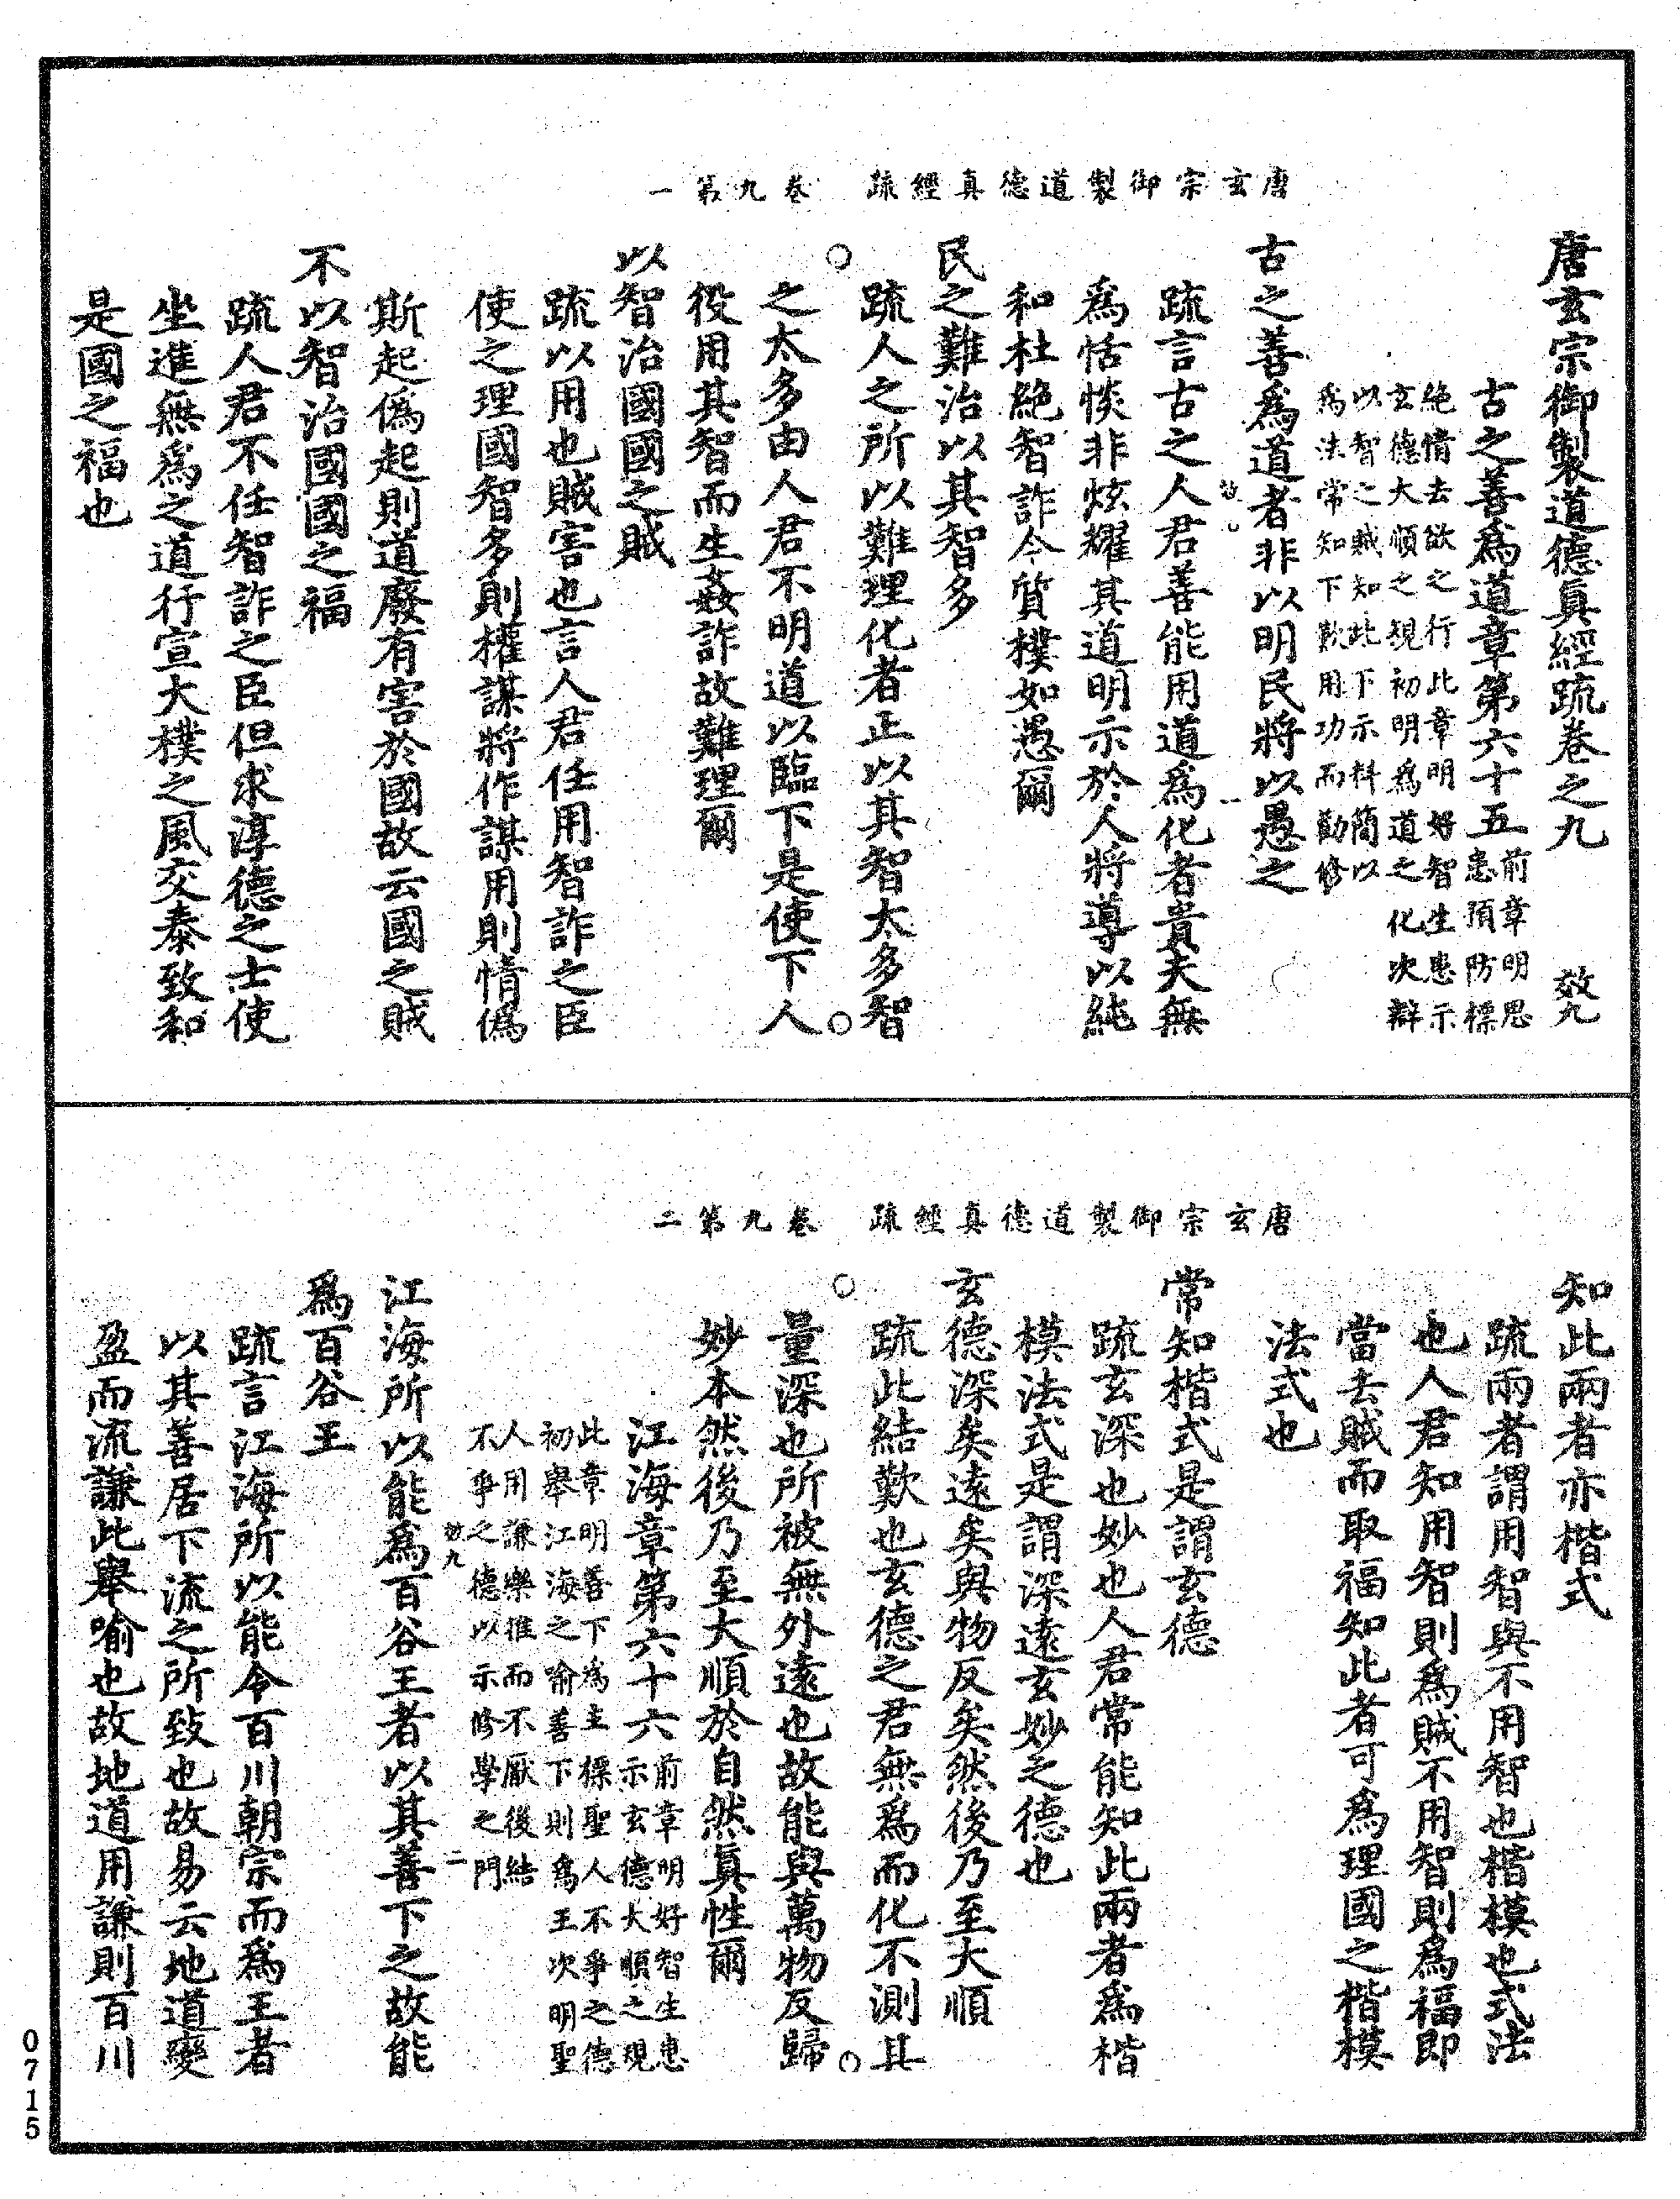 唐玄宗御製道德真經疏　卷九第一
唐玄宗御製道德真經疏卷之九　效九
古之善爲道章第六十五前章明思患預防標
絶情去欲之行此章明好智生患示
玄德大順之現初明爲道之化次辯
以智之賊知此下示料簡以
爲法常知下歎用功而勸修
古之善爲道者非以明民將以愚之
疏言古之人君善能用道爲化者貴夫無
爲恬惔非炫耀其道明示於人將導以純
和杜絶智詐令質樸如愚爾
民之難治以其智多
疏人之所以難理化者正以其智太多智
之太多由人君不明道以臨下是使下人
役用其智而生姦詐故難理爾
以智治國國之賊
疏以用也賊害也言人君任用智詐之臣
使之理國智多則權謀將作謀用則情僞
斯起僞起則道廢有害於國故云國之賊
不以智治國國之福
疏人君不任智詐之臣但求淳德之士使
坐進無爲之道行宣大樸之風交泰致和
是國之福也
唐玄宗御製道德真經疏　卷九第二
知此兩者亦楷式
疏兩者謂用智與不用智也楷模也式法
也人君知用智則爲賊不用智則爲福即
當去賊而取福知此者可爲理國之楷模
法式也
常知楷式是謂玄德
疏玄深也妙也人君常能知此兩者爲楷
模法式是謂深遠玄妙之德也
玄德深矣遠矣與物反矣然後乃至大順
疏此結歎也玄德之君無爲而化不測其
量深也所被無外遠也故能與萬物反歸
妙本然後乃至大順於自然真性爾
江海章第六十六前章明好智生患示玄德大順之現
此章明善下爲主標聖人不爭之德
初舉江海之喻善下則爲王次明聖
人用謙樂推而不厭後結
不爭之德以示修學之門
效九　二
江海所以能爲百谷王者以其善下之故能
爲百谷王
疏言江海所以能令百川朝宗而爲王者
以其善居下流之所致也故易云地道變
盈而流謙此舉喻也故地道用謙則百川
0715